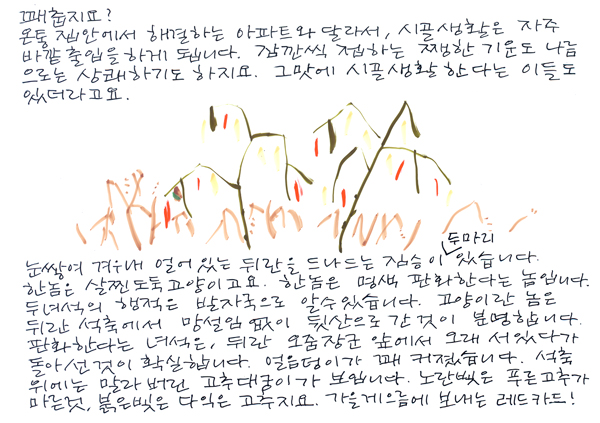 꽤춥지요?
온통 집안에서 해결하는 아파트와 달라서, 시골생활은 자주
바깥출입을 하게 됩니다. 잠깐씩 접하는 쨍한 기운도 나름
으로는 상쾌하기도 하지요. 그맛에 시골생활 한다는 이들도
있더라고요.
눈쌓여 겨우내 얼어있는 뒤란을 드나드는 짐승이 두마리 있습니다.
한놈은 살찐도둑고양이고요. 한놈은 명색 판화한다는 놈입니다.
두녀석의 행적은 발자국으로 알수있습니다. 고양이란 놈은
뒤란 석축에서 망설임 없이 뒷산으로 간것이 분명합니다.
판화한다는 녀석은, 뒤란 오줌장군 앞에서 오래 서있다가
돌아선것이 확실합니다. 얼음덩이가 꽤 커졌습니다. 석축
위에는 말라버린 고추대궁이가 보입니다. 노란빛은 푸른고추가
마른것, 붉은빛은 다익은 고추지요. 가을게으름에 보내는 레드카드!